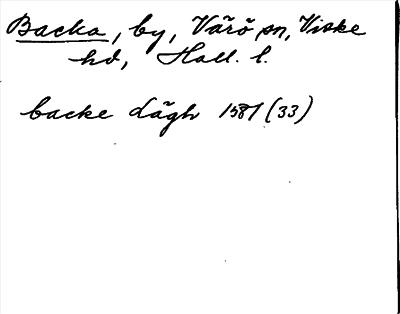 Backa, by, Värö sn, Viske
hd, Hall. l.
backe Lägh 1581 (33)